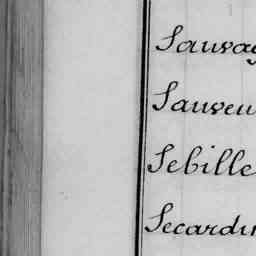 Sauvag
Sauveu
Sebille
Secardin